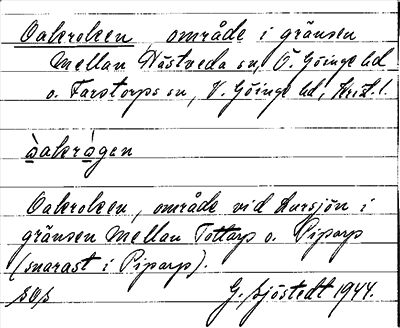 Oakroken, område i gränsen
mellan Västveda sn, Ö. Göinge hd
o. Farstorps sn, V. Göinge hd, Krist. l.
òakrågen
Oakroken, område vid Lursjön i
gränsen mellan Tottarp o. Piparp
(snarast i Piparp).
G. Sjöstedt 1944.